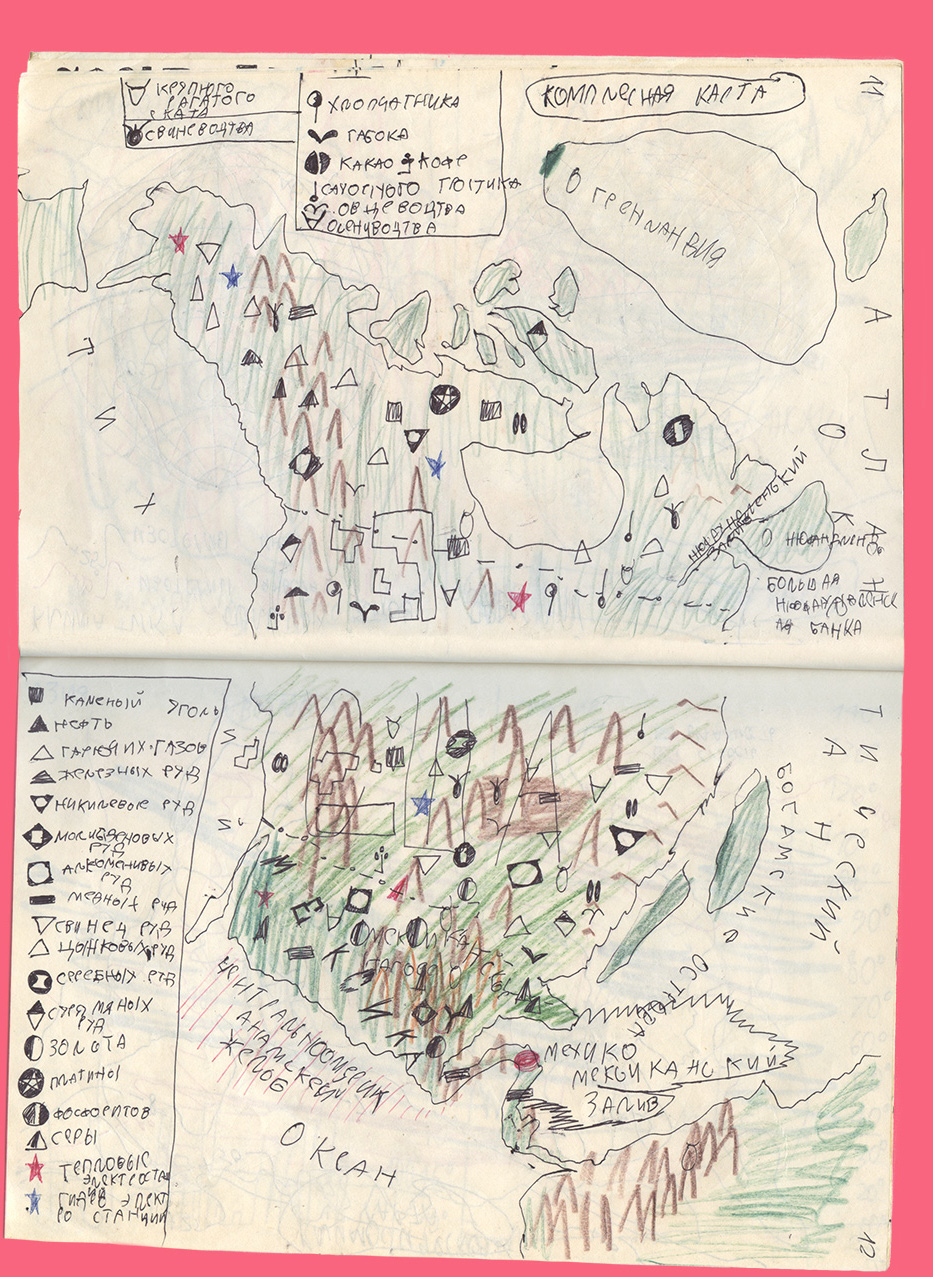 КРУПНОГО
РАГАТОГО
СКАТА
СВИНЕВОЦТВА
ХЛОПЧАТНИКА
ТАБОКА
КАКАО И КОФЕ
САХОРНОГО ТРОСТИКА
ОВЦЕВОЦТВА
ОЛЕНИВОЦТВА
КОМПЛЕСНАЯ КАРТА
11
О ГРЕНЛАНВИЯ
АТОЛАН
Т
И
Х
О НЮФАНДЛЕНД
БОЛЬШАЯ
БАНКА
КАМЕНЫЙ УГОЛЬ
НЕФТЬ
ГАРЮЧИХ ГАЗОВ
ЖЕЛЕЗНЫХ РУД
НИКИЛЕВЫЕ РУД
МОЛИБДЕНОВЫХ
РУД
АЛЮМЕНИВЫХ
РУД
МЕДНЫХ РУД
СВИНЕЦ РУД
ЦЫНКОВЫХ РУД
СЕРЕБНЫХ РУД
СУРЕМЯНЫХ
РУД
ЗОЛОТА
ПЛАТИНЫ
ФОСФОРИТОВ
СЕРЫ
ТЕПЛОВЫЕ
ЭЛЕКТРОСТА
ГИДРО ЭЛЕКТ
РО СТАНЦИИ
ТИЧЕСКИЙ
БОГАМСКИЕ
ОСТРОВА
ЦЕНТРАЛЬНООМЕРИК
ЖЕЛОБ
ОКЕАН
МЕХИКО
МЕКСИКАНСКИЙ
ЗАЛИВ
12